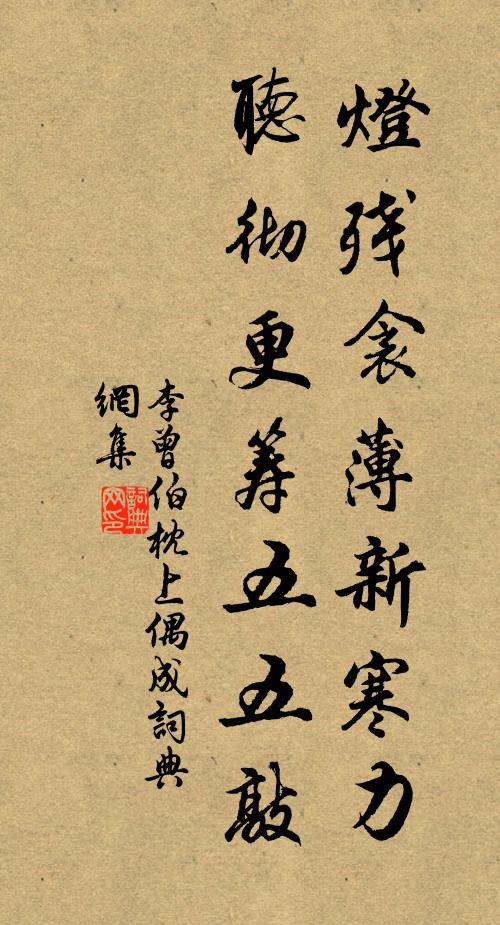 燈残衾薄新寒力
聽彻更筹五五敲
李曾伯枕上偶成詞典
網集
詞典
网印